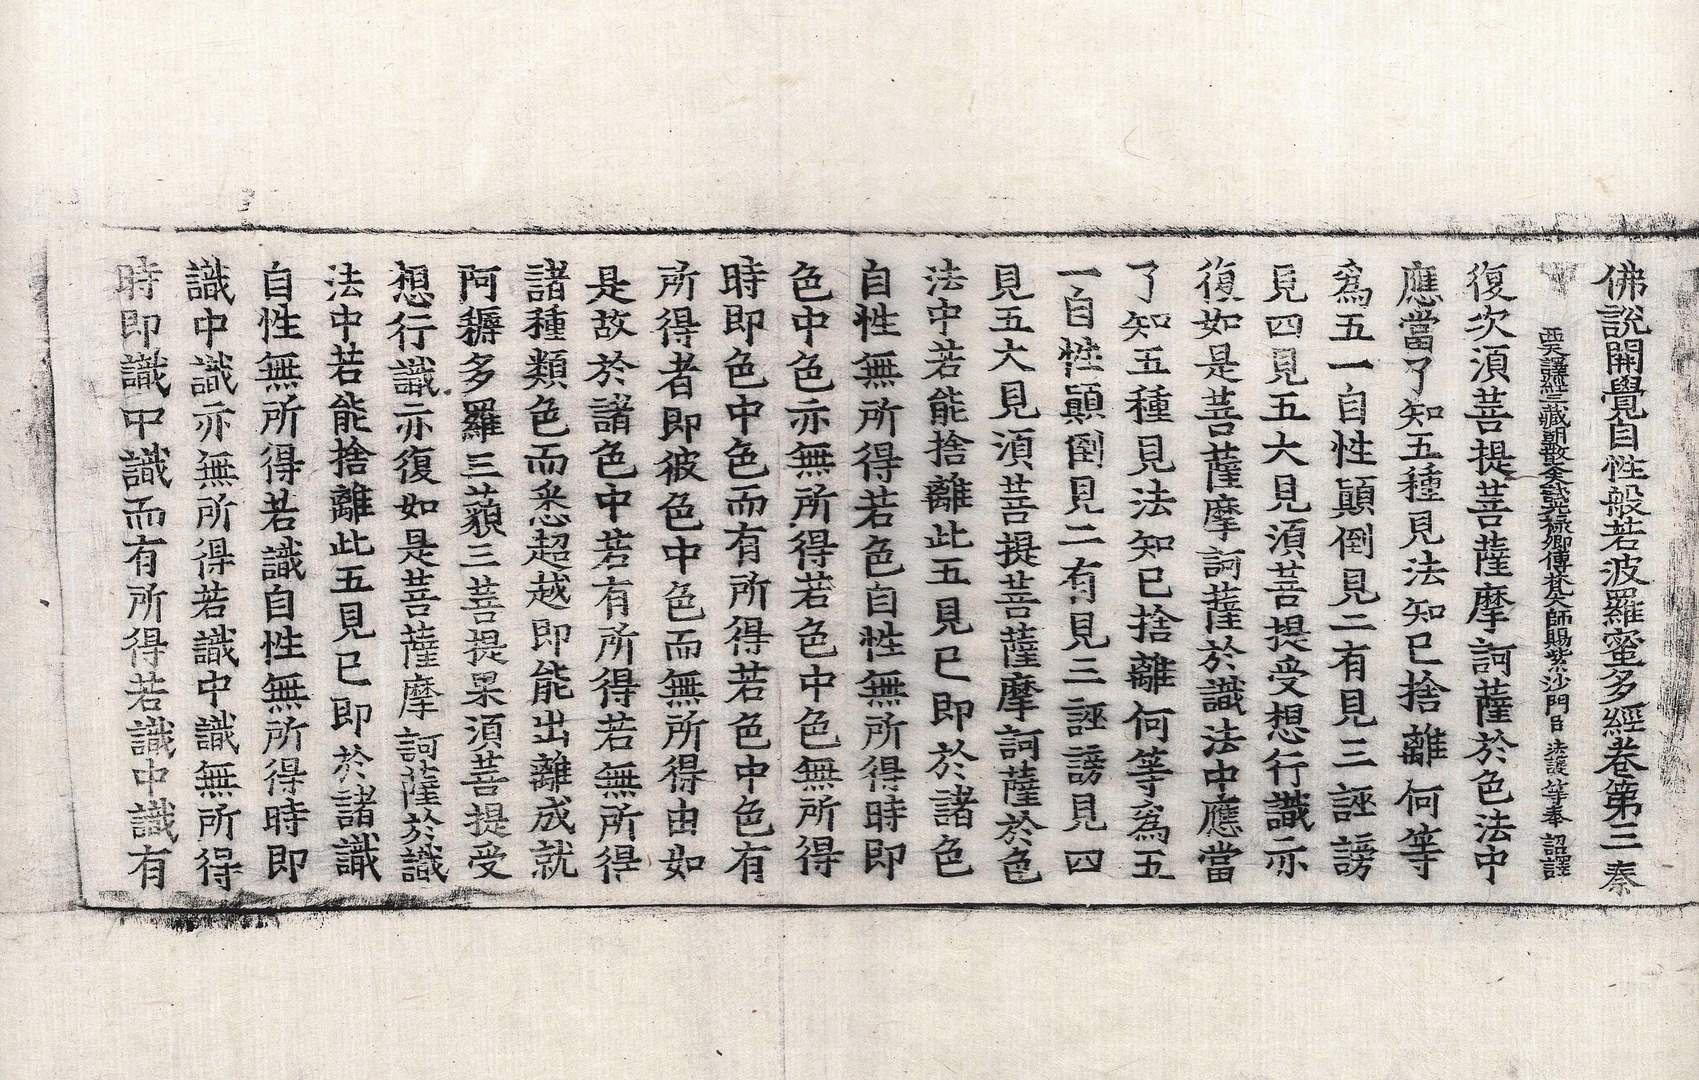 佛說開覺自性般若波羅蜜多經卷第三 秦
西天譯經三藏朝散大夫試光祿卿傳梵大師賜紫沙門臣法護等奉 詔譯
復次須菩提菩薩摩訶薩於色法中
應當了知五種見法知已捨離何等
爲五一自性顚倒見二有見三誣謗
見四見五大見須菩提受想行識亦
復如是菩薩摩訶薩於識法中應當
了知五種見法知已捨離何等爲五
一自性顚倒見二有見三誣謗見四
見五大見須菩提菩薩摩訶薩於色
法中若能捨離此五見已即於諸色
自性無所得若色自性無所得時即
色中色亦無所得若色中色無所得
時即色中色而有所得若色中色有
所得者即彼色中色而無所得由如
是故於諸色中若有所得若無所得
諸種類色而悉超越即能出離成就
阿耨多羅三藐三菩提果須菩提受
想行識亦復如是菩薩摩訶薩於識
法中若能捨離此五見已即於諸識
自性無所得若識自性無所得時即
識中識亦無所得若識中識無所得
時即識中識而有所得若識中識有